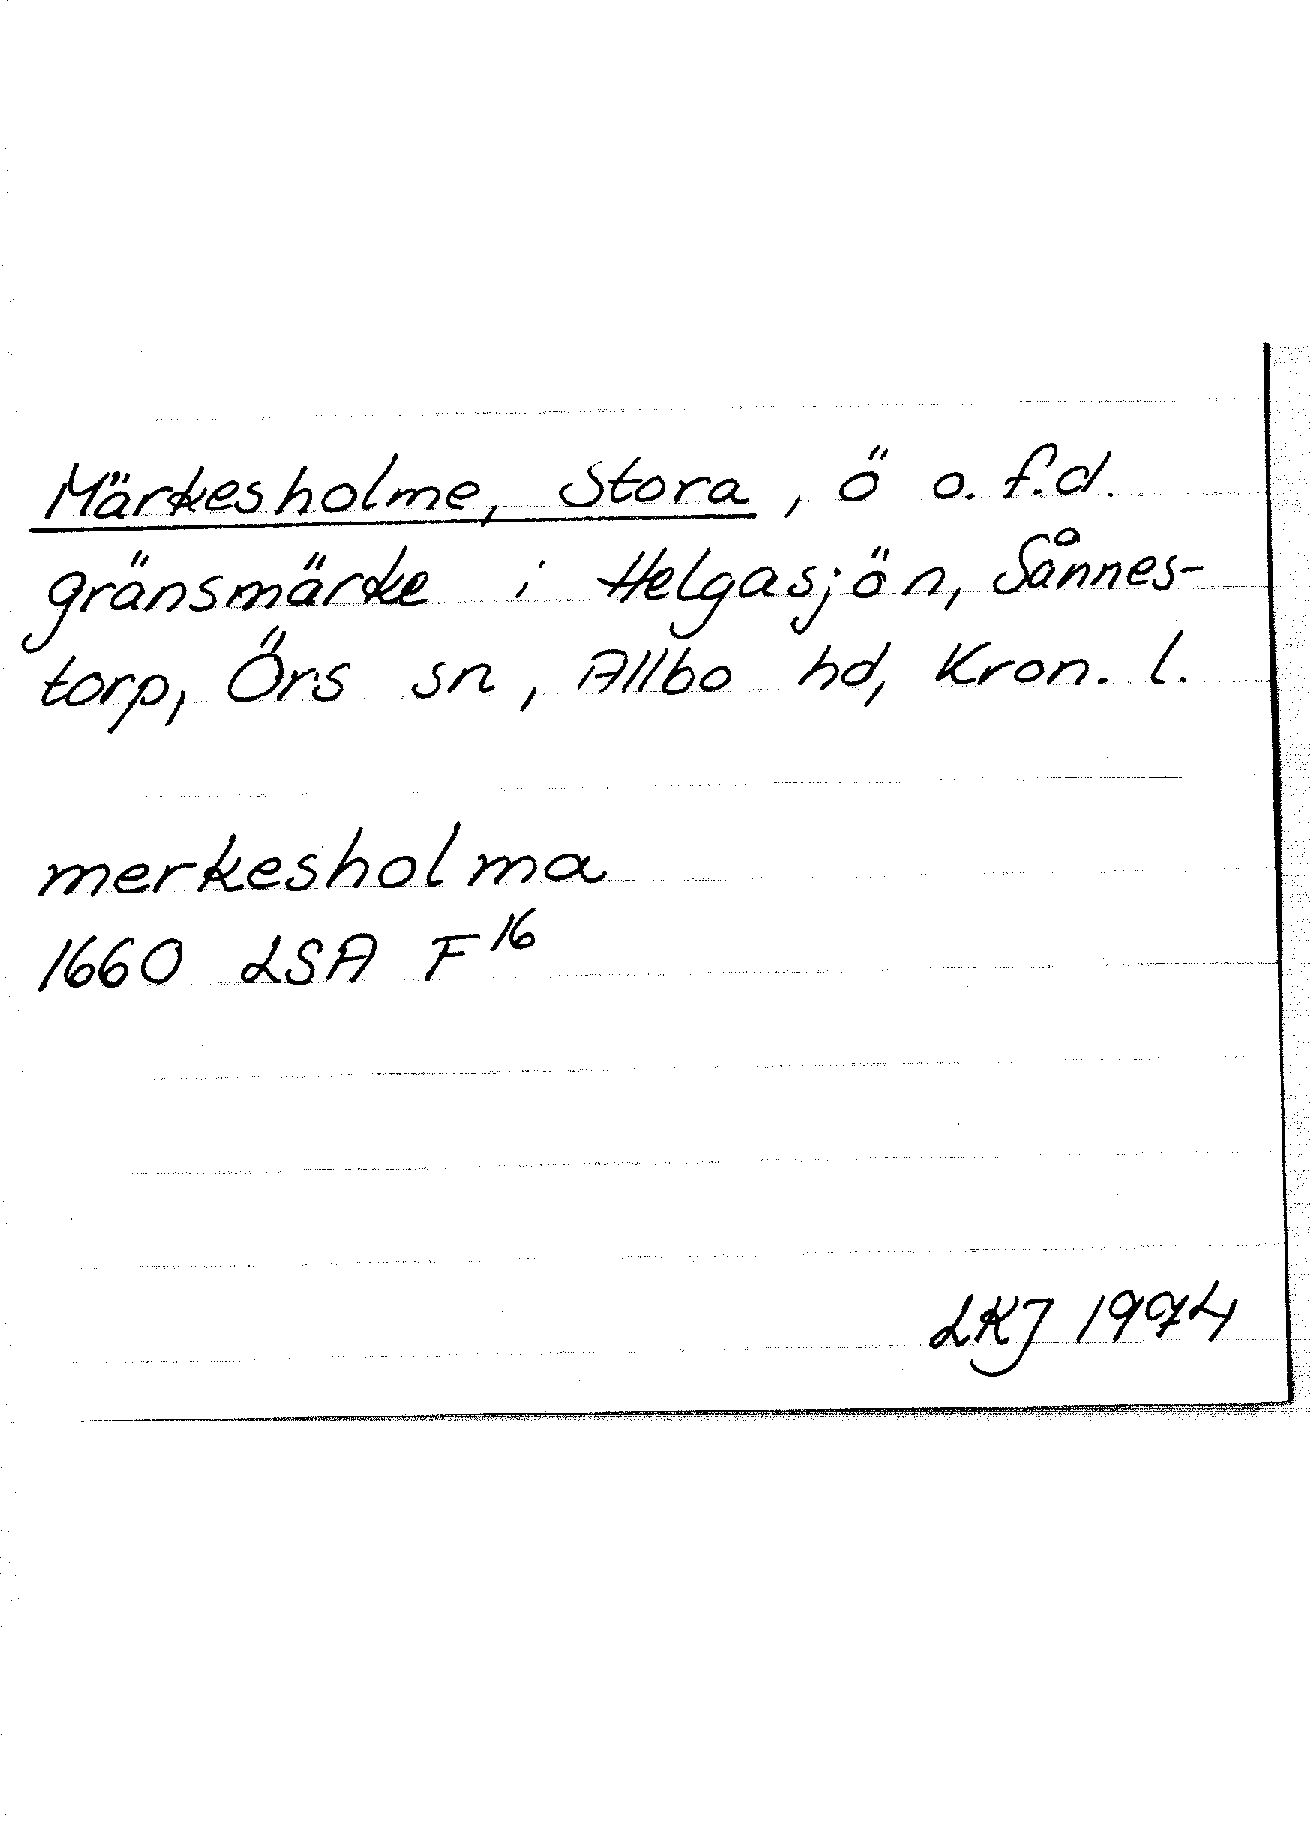 Märkesholme, Stora, ö o. f.d.
gränsmärke i Helgasjön, Sånnes-
torp, Örs sn, Allbo hd, Kron. l.
merkesholma
1660 LSA F16
LKJ 1974